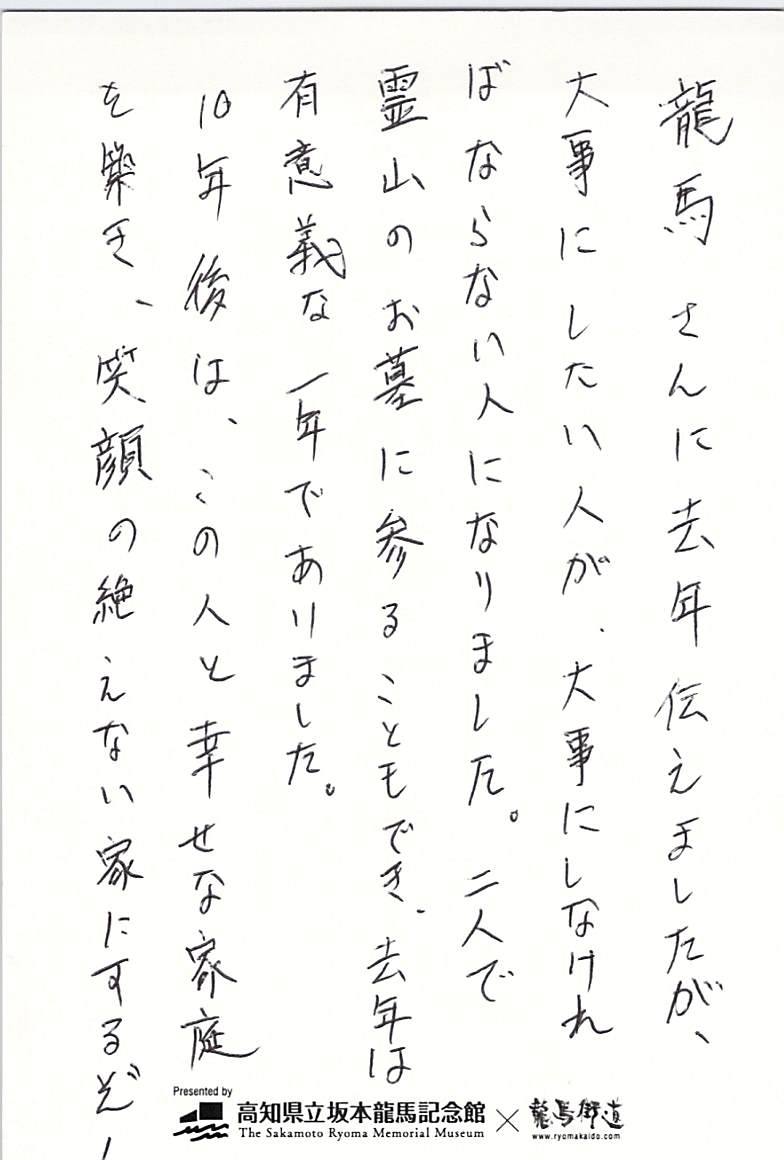 龍馬さんに去年伝えましたが、
大事にしたい人が、大事にしなけれ
ばならない人になりました。二人で
霊山のお墓に参ることもでき、去年は
有意義な一年でありました。
10年後は、この人と幸せな家庭
を築き、笑顔の絶えない家にするぞー
Presented by
高知県立坂本龍馬記念館
The Sakamoto Ryoma Memorial Museum
×
龍馬街道
www.ryomakaido.com